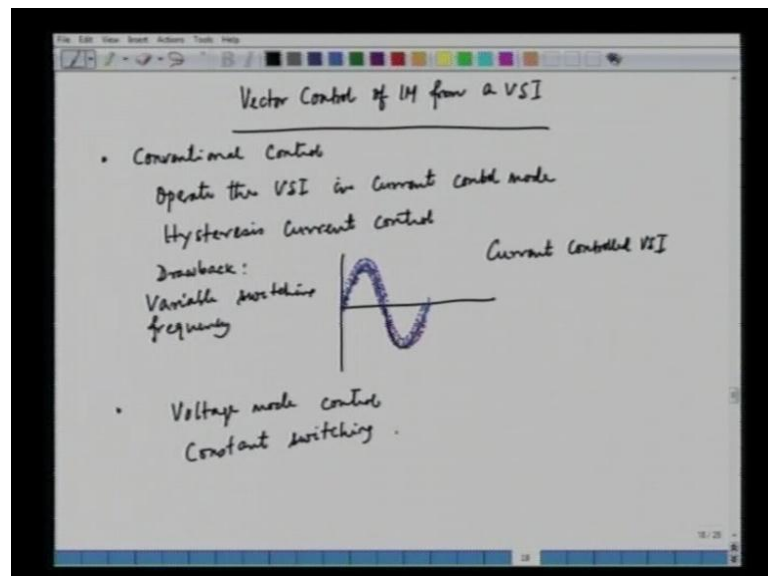 File Edit View Insert Actions Tools Help
Vector Control of IM from a VSI
• Conventional Control
Operate the VSI in Current contol mode
Hysteresis Current control
Current Controlled VSI
Drawback:
Variable switching
frequency
• Voltage mode control
Constant switching .
18/28
18